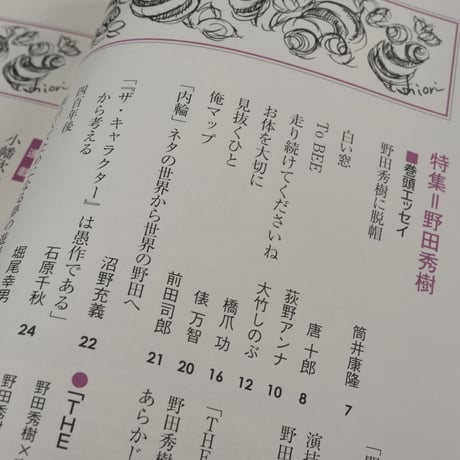 特集=野田秀樹
■巻頭エッセイ
野田秀樹に脱帽 筒井康隆 7
白い窓 唐十郎 8
To BEE 荻野アンナ 10
走り続けてくださいね 大竹しのぶ 12
お体を大切に 橋爪 功 16
見抜くひと 俵 万智 20
俺マップ 前田司郎 21
「内輪」ネタの世界から世界の野田へ 沼野充義 22
「『ザ・キャラクター』は愚作である」
から考える 石原千秋 24
四百年後
堀尾幸男
演技
野田
「THE
野田秀樹
あらかじ
●「THE
野田秀樹×
野田秀樹
連載
小幡